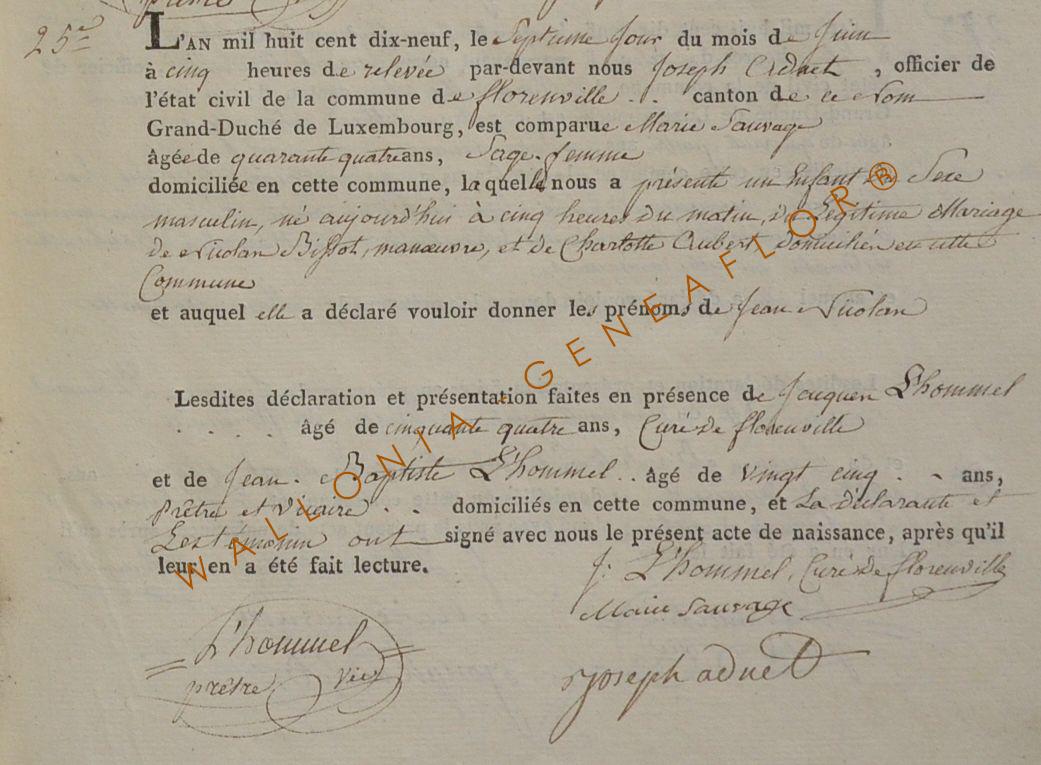 25e
L'AN mil huit cent dix-neuf, le Septieme Jour du mois de Juin
à cinq heures de relevée par-devant nous Joseph Adnet, officier de
l'état civil de la commune de florenville . . canton de ce Nom
Grand-Duché de Luxembourg, est comparue Marie Sauvage
âgée de quarante quatre ans, Sage-femme
domiciliée en cette commune, laquelle nous a présenté un Enfant du Sexe
masculin, né aujourd'hui à cinq heures du matin, du Légitime Mariage
de Nicolas Bissot, manœuvre, et de Charlotte Aubert, domiciliés en cette
Commune
et auquel elle a déclaré vouloir donner les prénoms de Jean Nicolas
Lesdites déclaration et présentation faites en présence de Jacques L'hommel
. . . . . âgé de cinquante quatre ans, Curé de florenville
et de Jean-Baptiste L'hommel . . âgé de vingt cinq . - ans,
Prêtre et Vicaire . . domiciliés en cette commune, et La Déclarante et
Les témoins ont signé avec nous le présent acte de naissance, après qu'il
leur en a été fait lecture.
J. L'hommel, Curé de florenville
Marie Sauvage
L'hommel
prêtre Vic
Joseph adnet
WALLONIA - GENEAFLOR®